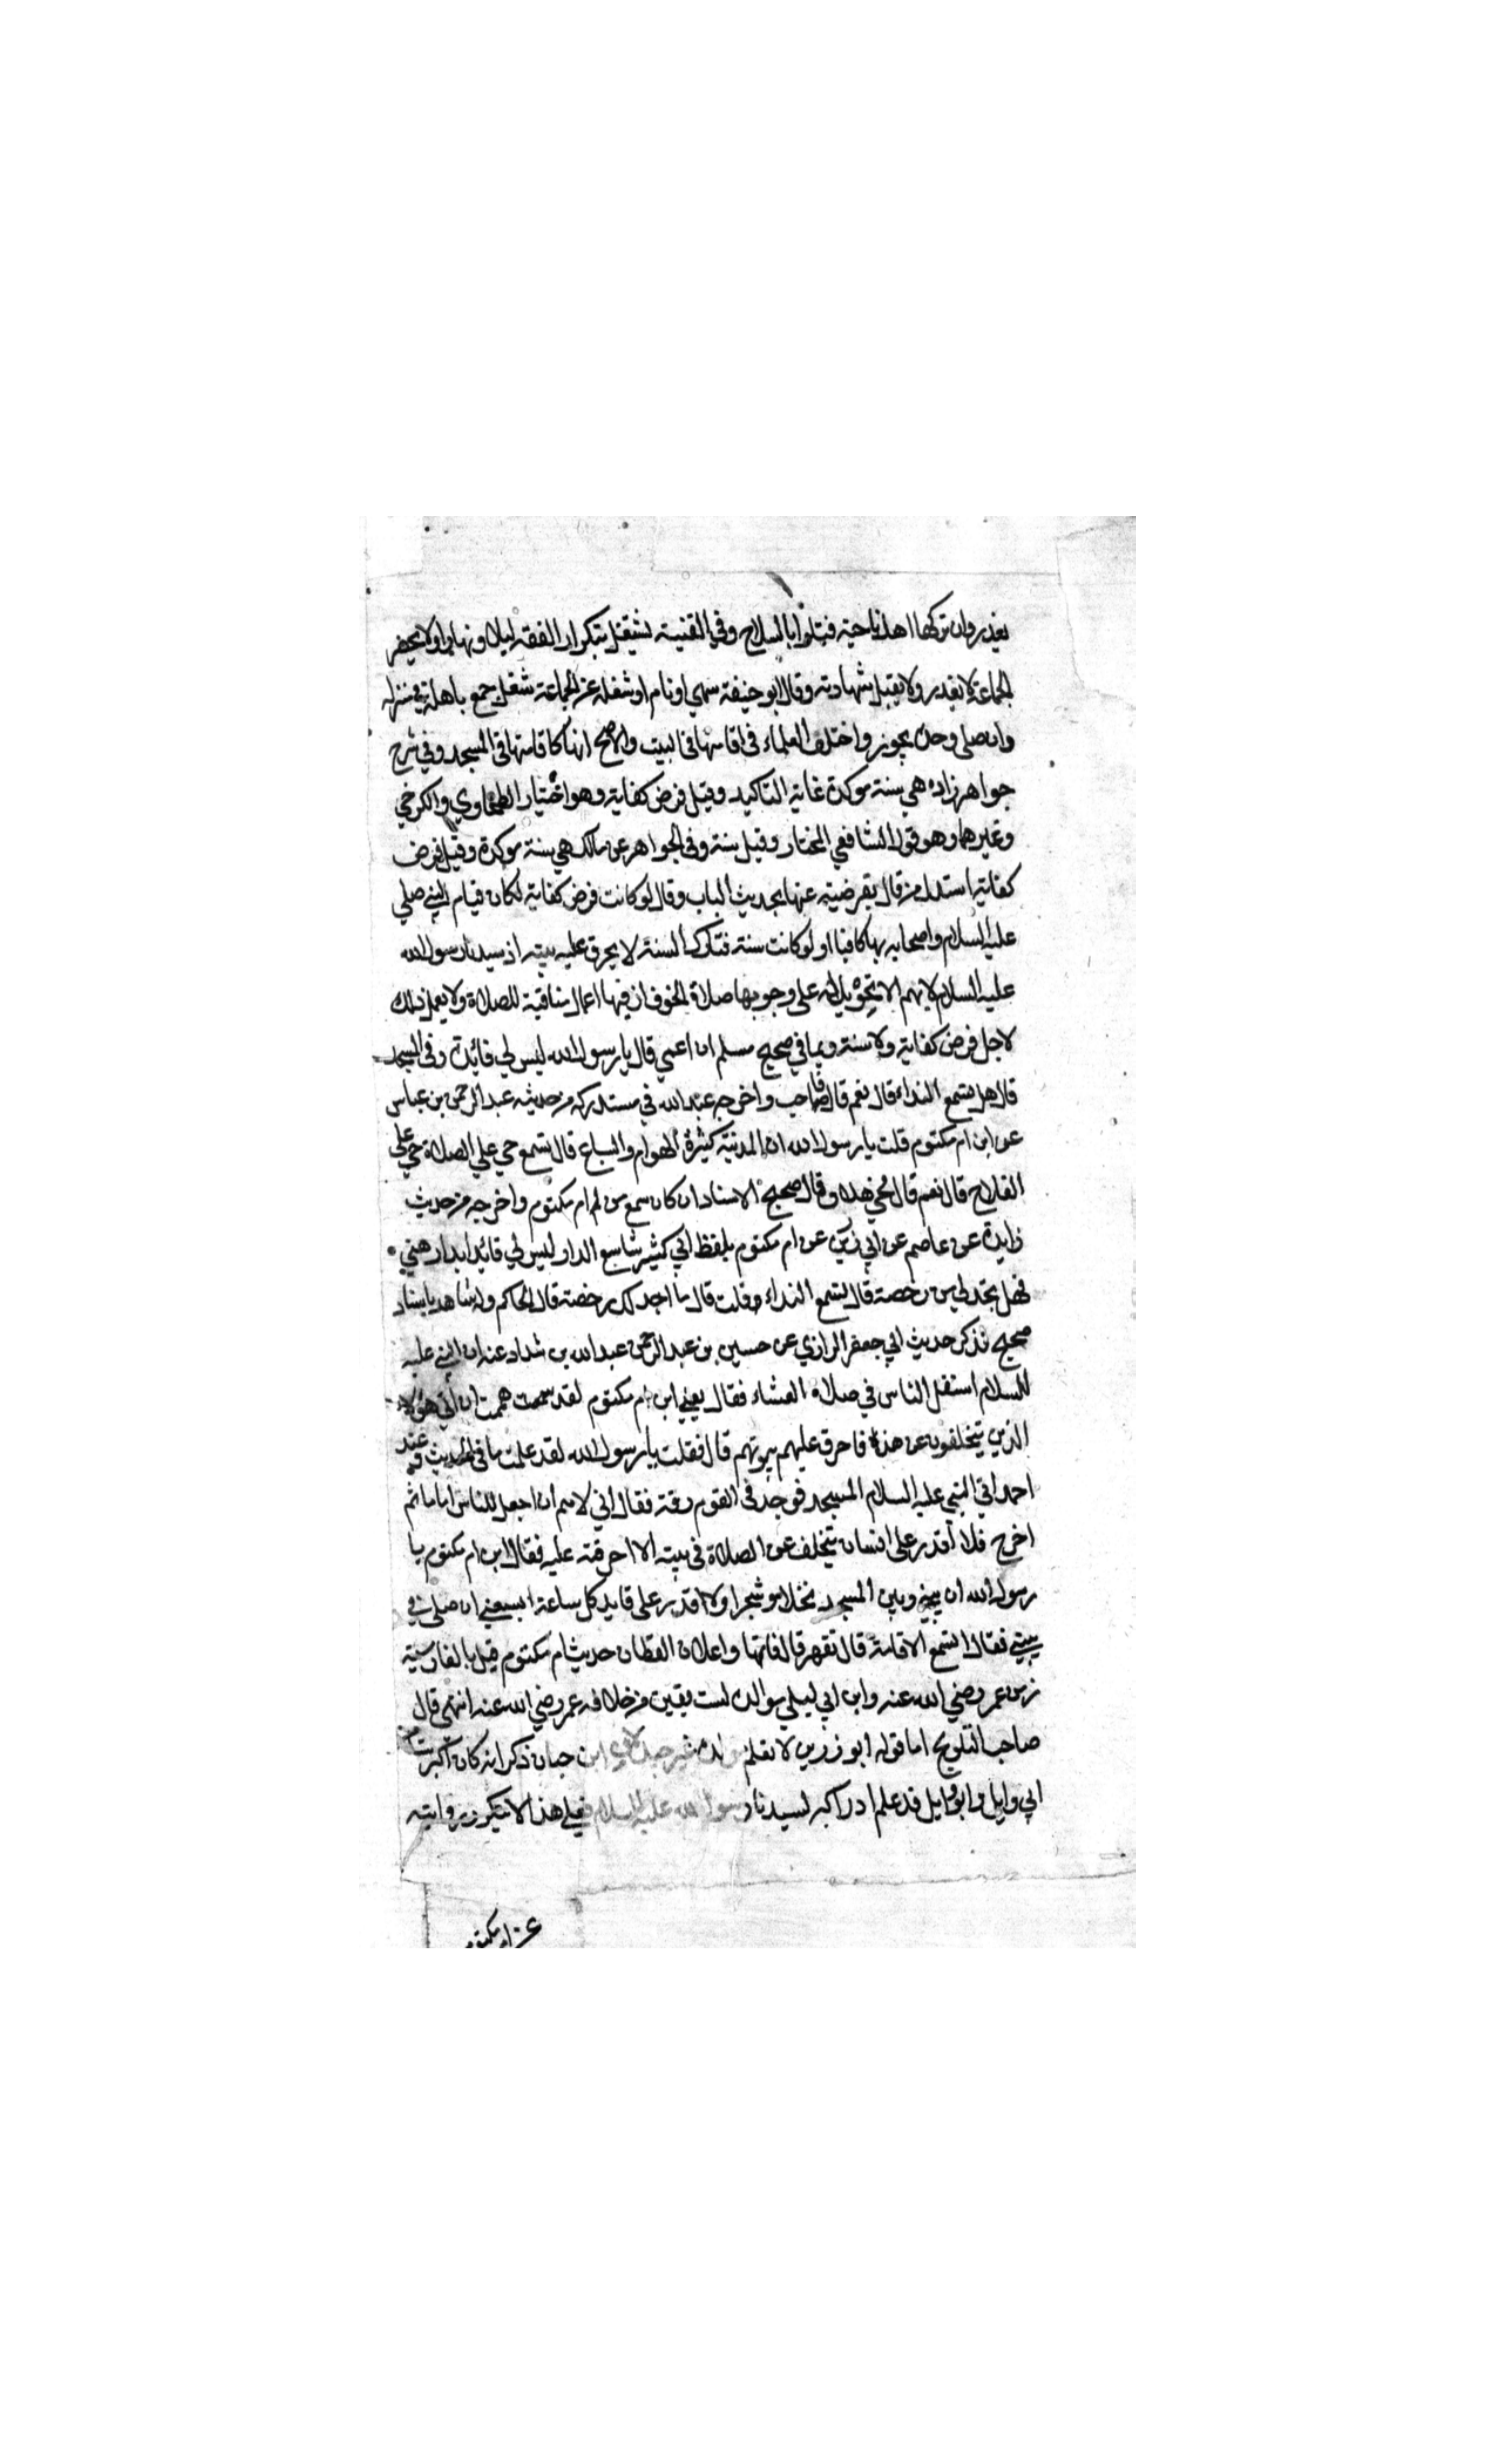 يغدر وان تركها اهل ناحية فيتلوا بالسلاح وفي القنية يشتغل بتكرار الفقه ليلا ونهارا ولا يحضر
الجماعة لا يغدر ولا يقبل شهادته وقال ابو حنيفة سهي او نام او شغله عن الجماعة شغل جمع باهله في منزله
وان صلى وحده يجوز واختلف العلماء في اقامتها في البيت والاصح انها كاقامتها في المسجد وفي شرح
جواهر زاده هي سنة موكدة غاية التاكيد وقيل فرض كفاية وهو اختيار الطحاوي والكرخي
وغيرهما وهو قول الشافعي المختار وقيل سنة وفي الجواهر عن مالك هي سنة موكدة وقيل فرض
كفاية استدل من قال بفرضية عنها بحديث الباب وقال لو كانت فرض كفاية لكان قيام النبي صلي
عليه السلام واصحابه بها كافيا او لو كانت سنة فتارك السنة لا يحرق عليه بيته اذ سيدنا رسول الله
عليه السلام لا يهم الا بحق ويدل على وجوبها صلاة الخوف ان فيها اعمال منافية للصلاة ولا يعمل ذلك
لاجل فرض كفاية ولا سنة وبما في صحيح مسلم ان اعمي قال يا رسول الله ليس لي فائد وفي المسجد
قال هل تسمع النداء قال نعم قال فاجب واخرجه عبد الله في مستدركه من حديثه عبد الرحمن بن عباس
عن ابن ام مكتوم قلت يا رسول الله ان المدينة كثيرة الهوام والسباع قال تسمع حي علي الصلاة حي علي
الفلاح قال نعم قال فحي هلا وقال صحيح الاسناد ان كان سمع من ام مكتوم واخرجه من حديث
زايدة عن عاصم عن ابي رزين عن ام مكتوم بلفظ اني كثير شاسع الدار وليس لي قائد
فهل تجد لي من رخصة قال تسمع النداء قلت قال ما اجد لك رخصة قال الحاكم وله شاهد باسناد
صحيح فذكر حديث ابي جعفر الرازي عن حسين بن عبد الرحمن عبد الله بن شداد عنه ان النبي عليه
السلام استقل الناس في صلاة العشاء فقال يعني ابن ام مكتوم لقد هممت ان اتي هؤلاء
الذين يتخلفون عن هذه فاحرق عليهم بيوتهم قال فقلت يا رسول الله لقد علمت ما في الحديث وعند
احمد اتي النبي عليه السلام المسجد فوجد في القوم رقة فقال اني لاهم ان اجعل للناس اماما ثم
اخرج فلا اقدر على انسان يتخلف عن الصلاة في بيته الا احرقته عليه فقال ابن ام مكتوم يا
رسول الله ان بيني وبين المسجد نخلا وشجرا ولا اقدر على قايد كل ساعة ايسعني ان صلي في
بيتي فقال اتسمع الاقامة قال نعم قال فاتها واعلان القطان حديث ام مكتوم
عمر رضي الله عنه وابن ابي ليلي عمر رضي الله عنه انتهى قال
صاحب التلويح اما قوله ابو رزين لا نعلم غير جيد لان ابن حبان ذكر انه كان اكبر من
ابي وايل وابو وايل قد علم ادراكه لسيدنا رسول الله عليه السلام فعلي هذا لا تنكر روايته
عن ام مكتوم